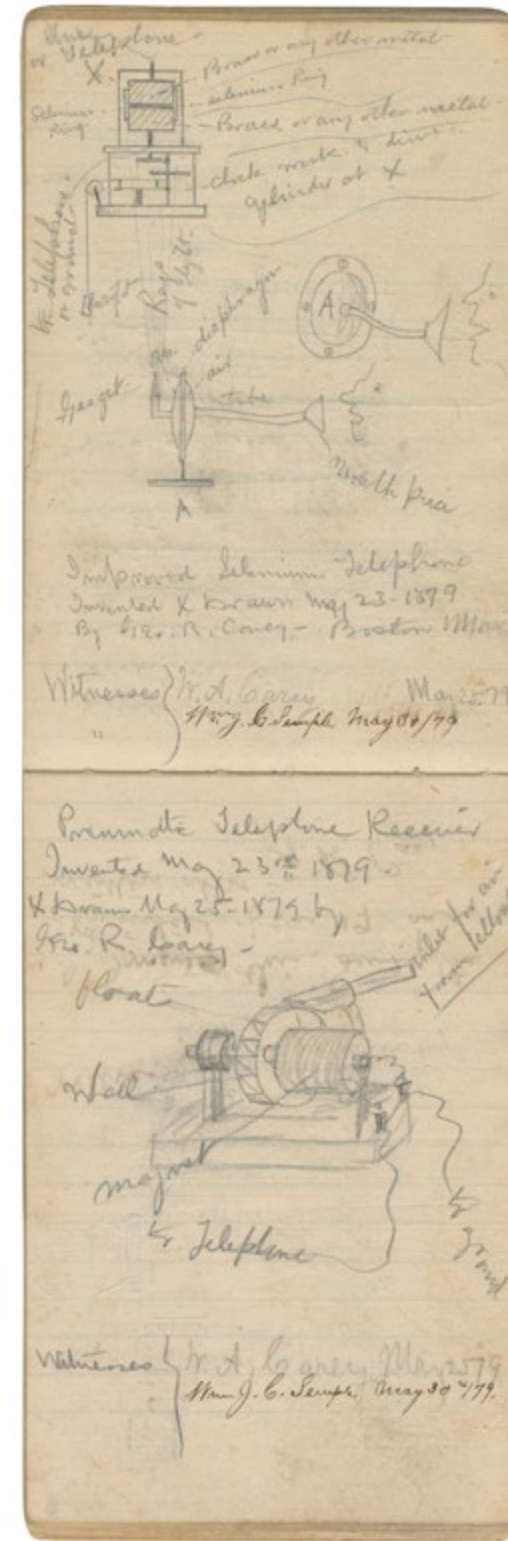 or Telephone -
X
Brass or any other metal
Selenium Ring
Selenium
Ring
Brass or any other metal -
clock work to drive
cylinder at X
to Telephone
or ground
Rays
of light
diaphragm
air
tube
A
Mouth piece
A
Improved Selenium Telephone
Invented & Drawn May 23 - 1879
By Geo. R. Carey - Boston Mass
Witnesses W. A. Carey May 25 79
" Wm J. C. Semple May 30/79
Pneumatic Telephone Receiver
Invented May 23rd 1879 -
& Drawn May 25 - 1879 by
Geo. R. Carey -
inlet for air
from bellows
float
magnet
to Telephone
to ground
Witnesses W. A. Carey May 25 79
Wm J. C. Semple May 30th/79.